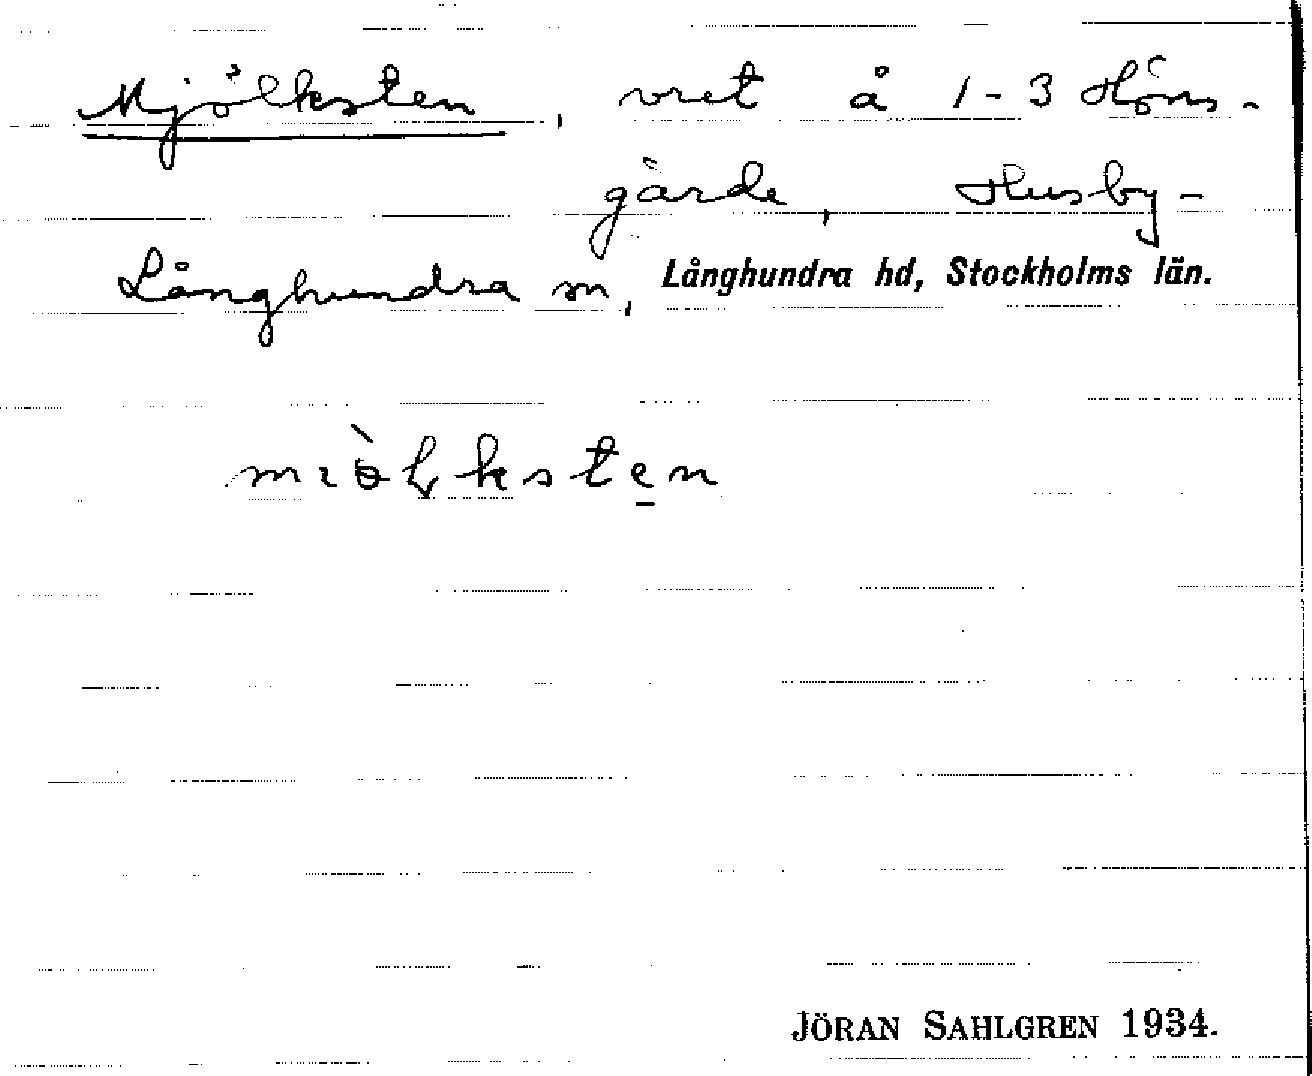 Mjölksten, vret å 1-3 Höns-
gärde, Husby-
Långhundra sn, Långhundra hd, Stockholms län.
mıɵ̀lksten̠
JÖRAN SAHLGREN 1934.